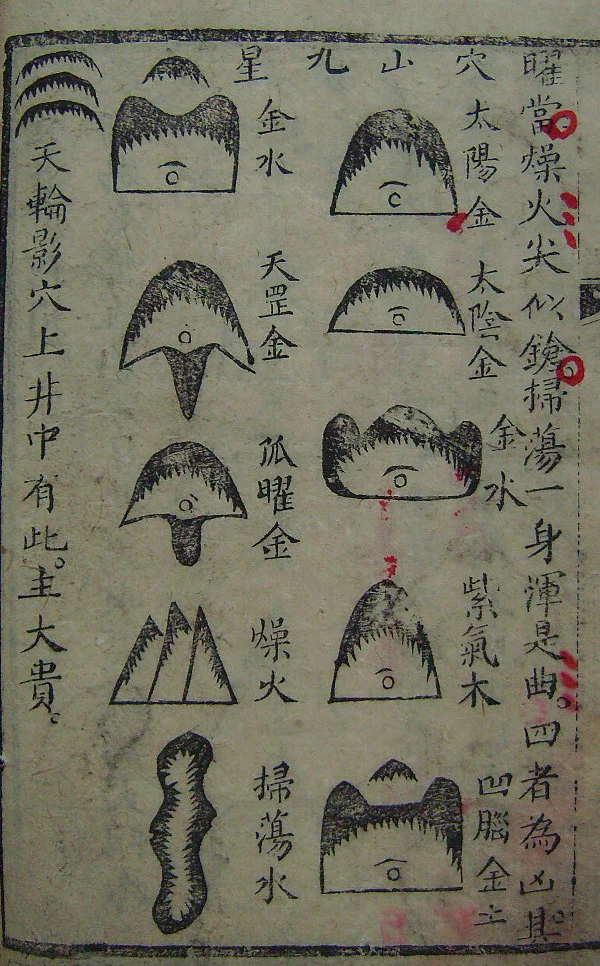 曜當燥火尖似鎗掃蕩一身渾是曲。四者為凶其。
穴山九星
太陽金
太陰金
金水
紫氣木
凹腦金土
金水
天罡金
孤曜金
燥火
掃蕩水
天輪影穴上井中有此。主大貴。